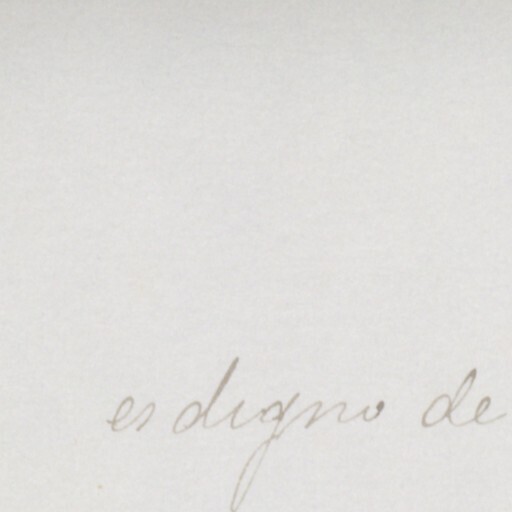 es digno de